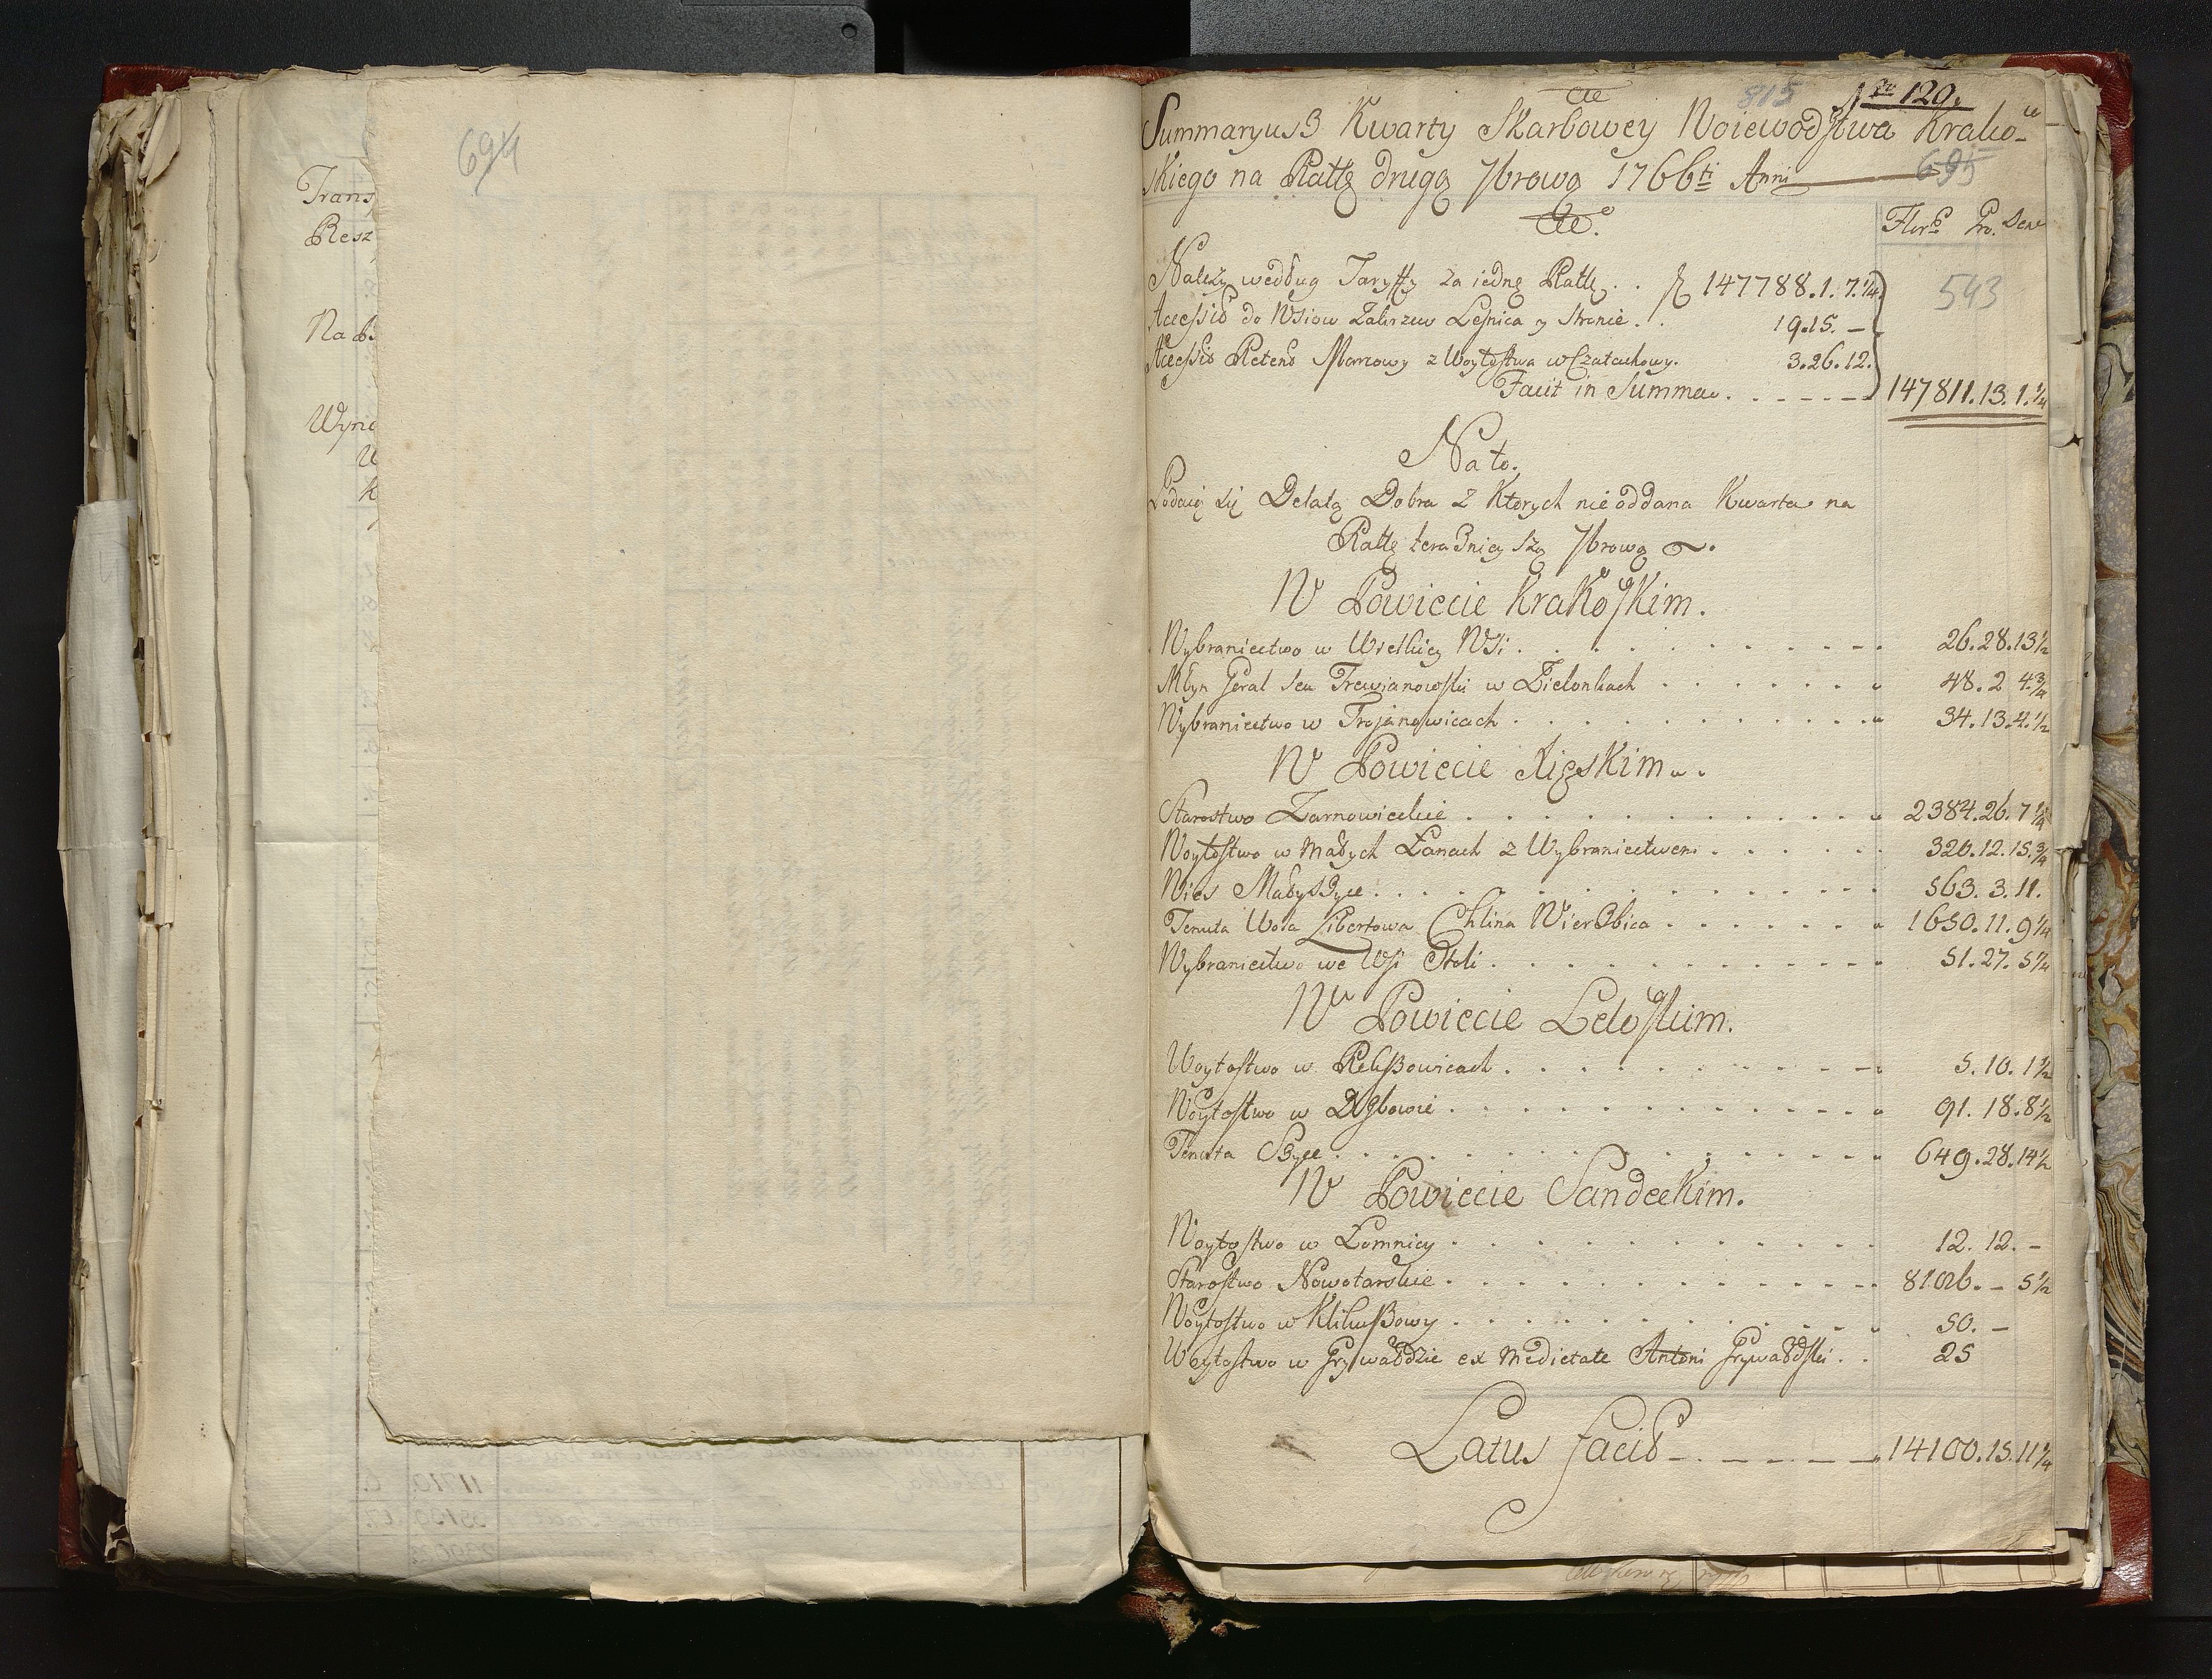 694
Trans
Resz
Na
Wyni
815
Nro 129.
Summaryusz Kwarty Skarbowey Woiewodstwa Krako-
skiego na Rattę drugą 7brową 1766ti Anni
695
Flor. Gro. Den
543
Należy według Taryffy za iednę Rattę . . fl 147788.1.7.1/4
Accessio do Wsiow Zakrzew Leśnica y Stronie . . 19.15. –
Accessio Retent Marcowy z Woytostwa w Czatachowy. 3.26.12.
Facit in Summa . . . . . 147811.13.1.1/4
Na to.
Podaią się Delatą Dobra z Ktorych nie oddana Kwarta na
Rattę teraznieyszą 7brową
W Powiecie Krakoskim.
Wybraniectwo w Wsi . . . . 26.28.13 1/2
Młyn Goral seu Trewianowski w Zielonkach . . . . 48.2 4.3/4
Wybraniectwo w Trojanowicach . . . . 34.13.4.1/2
W Powiecie Xięskim.
Starostwo Zarnowieckie . . . . 2384.26.7 1/4
Woytostwo w Małych Łanach z Wybraniectwem . . . . 320.12.15.3/4
Wies Małyszyce . . . . 563.3.11.
Tenuta Wola Libertowa Chlina Wierzbica . . . . 1650.11.9 1/4
Wybraniectwo we Wsi . . . . 51.27.5 1/4
W Powiecie Leloskim.
Woytostwo w . . . . 5.10.1 1/2
Woytostwo w Dębowie . . . . 91.18.8 1/2
Tenuta Szyce . . . . 649.28.14 1/2
W Powiecie Sandeckim.
Woytostwo w Łomnicy . . . . 12.12. –
Starostwo Nowotarskie . . . . 8102b. – 5 1/2
Woytostwo w Klikuszowy . . . . 50. –
Woytostwo w Grywałdzie ex medietate Antoni Grywałdski . . 25
Latus facit . . . . 14100.15.11 1/4